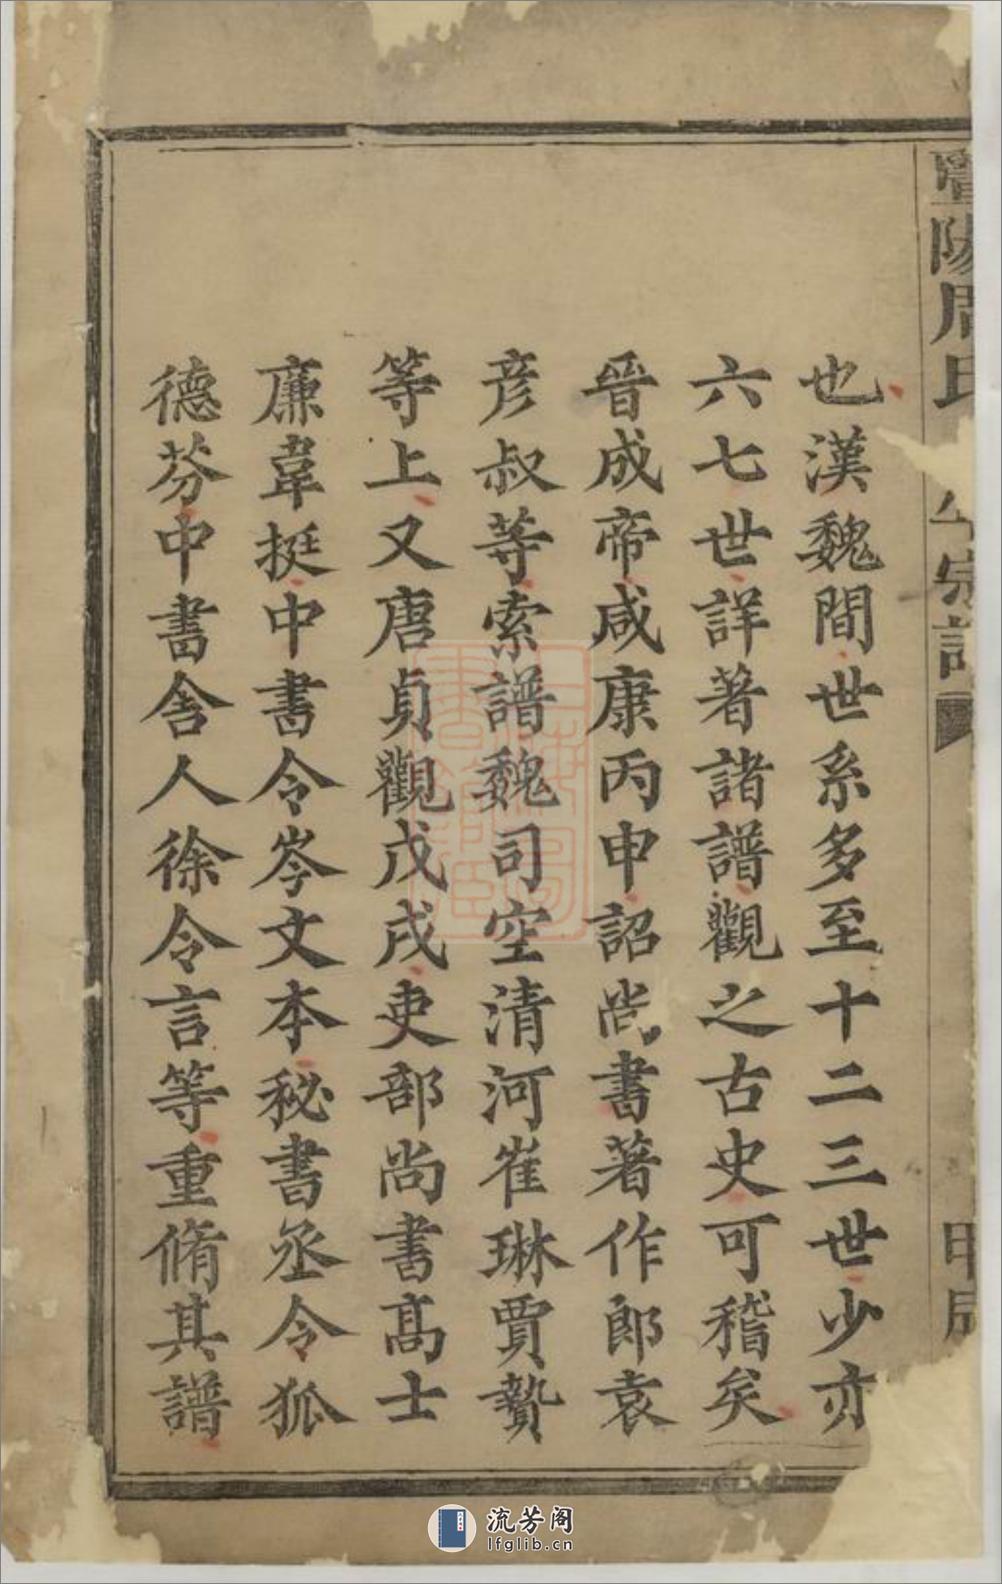 暨陽周氏宗譜
也漢魏間世系多至十二三世少亦
六七世詳著諸譜觀之古史可稽矣
晉成帝咸康丙申詔尚書著作郎袁
彦叔等索譜魏司空清河崔琳賈贄
等上又唐貞觀戊戌吏部尚書髙士
廉韋挺中書令岑文本秘書丞令狐
德芬中書舍人徐令言等重脩其譜
流芳阁
lfglib.cn